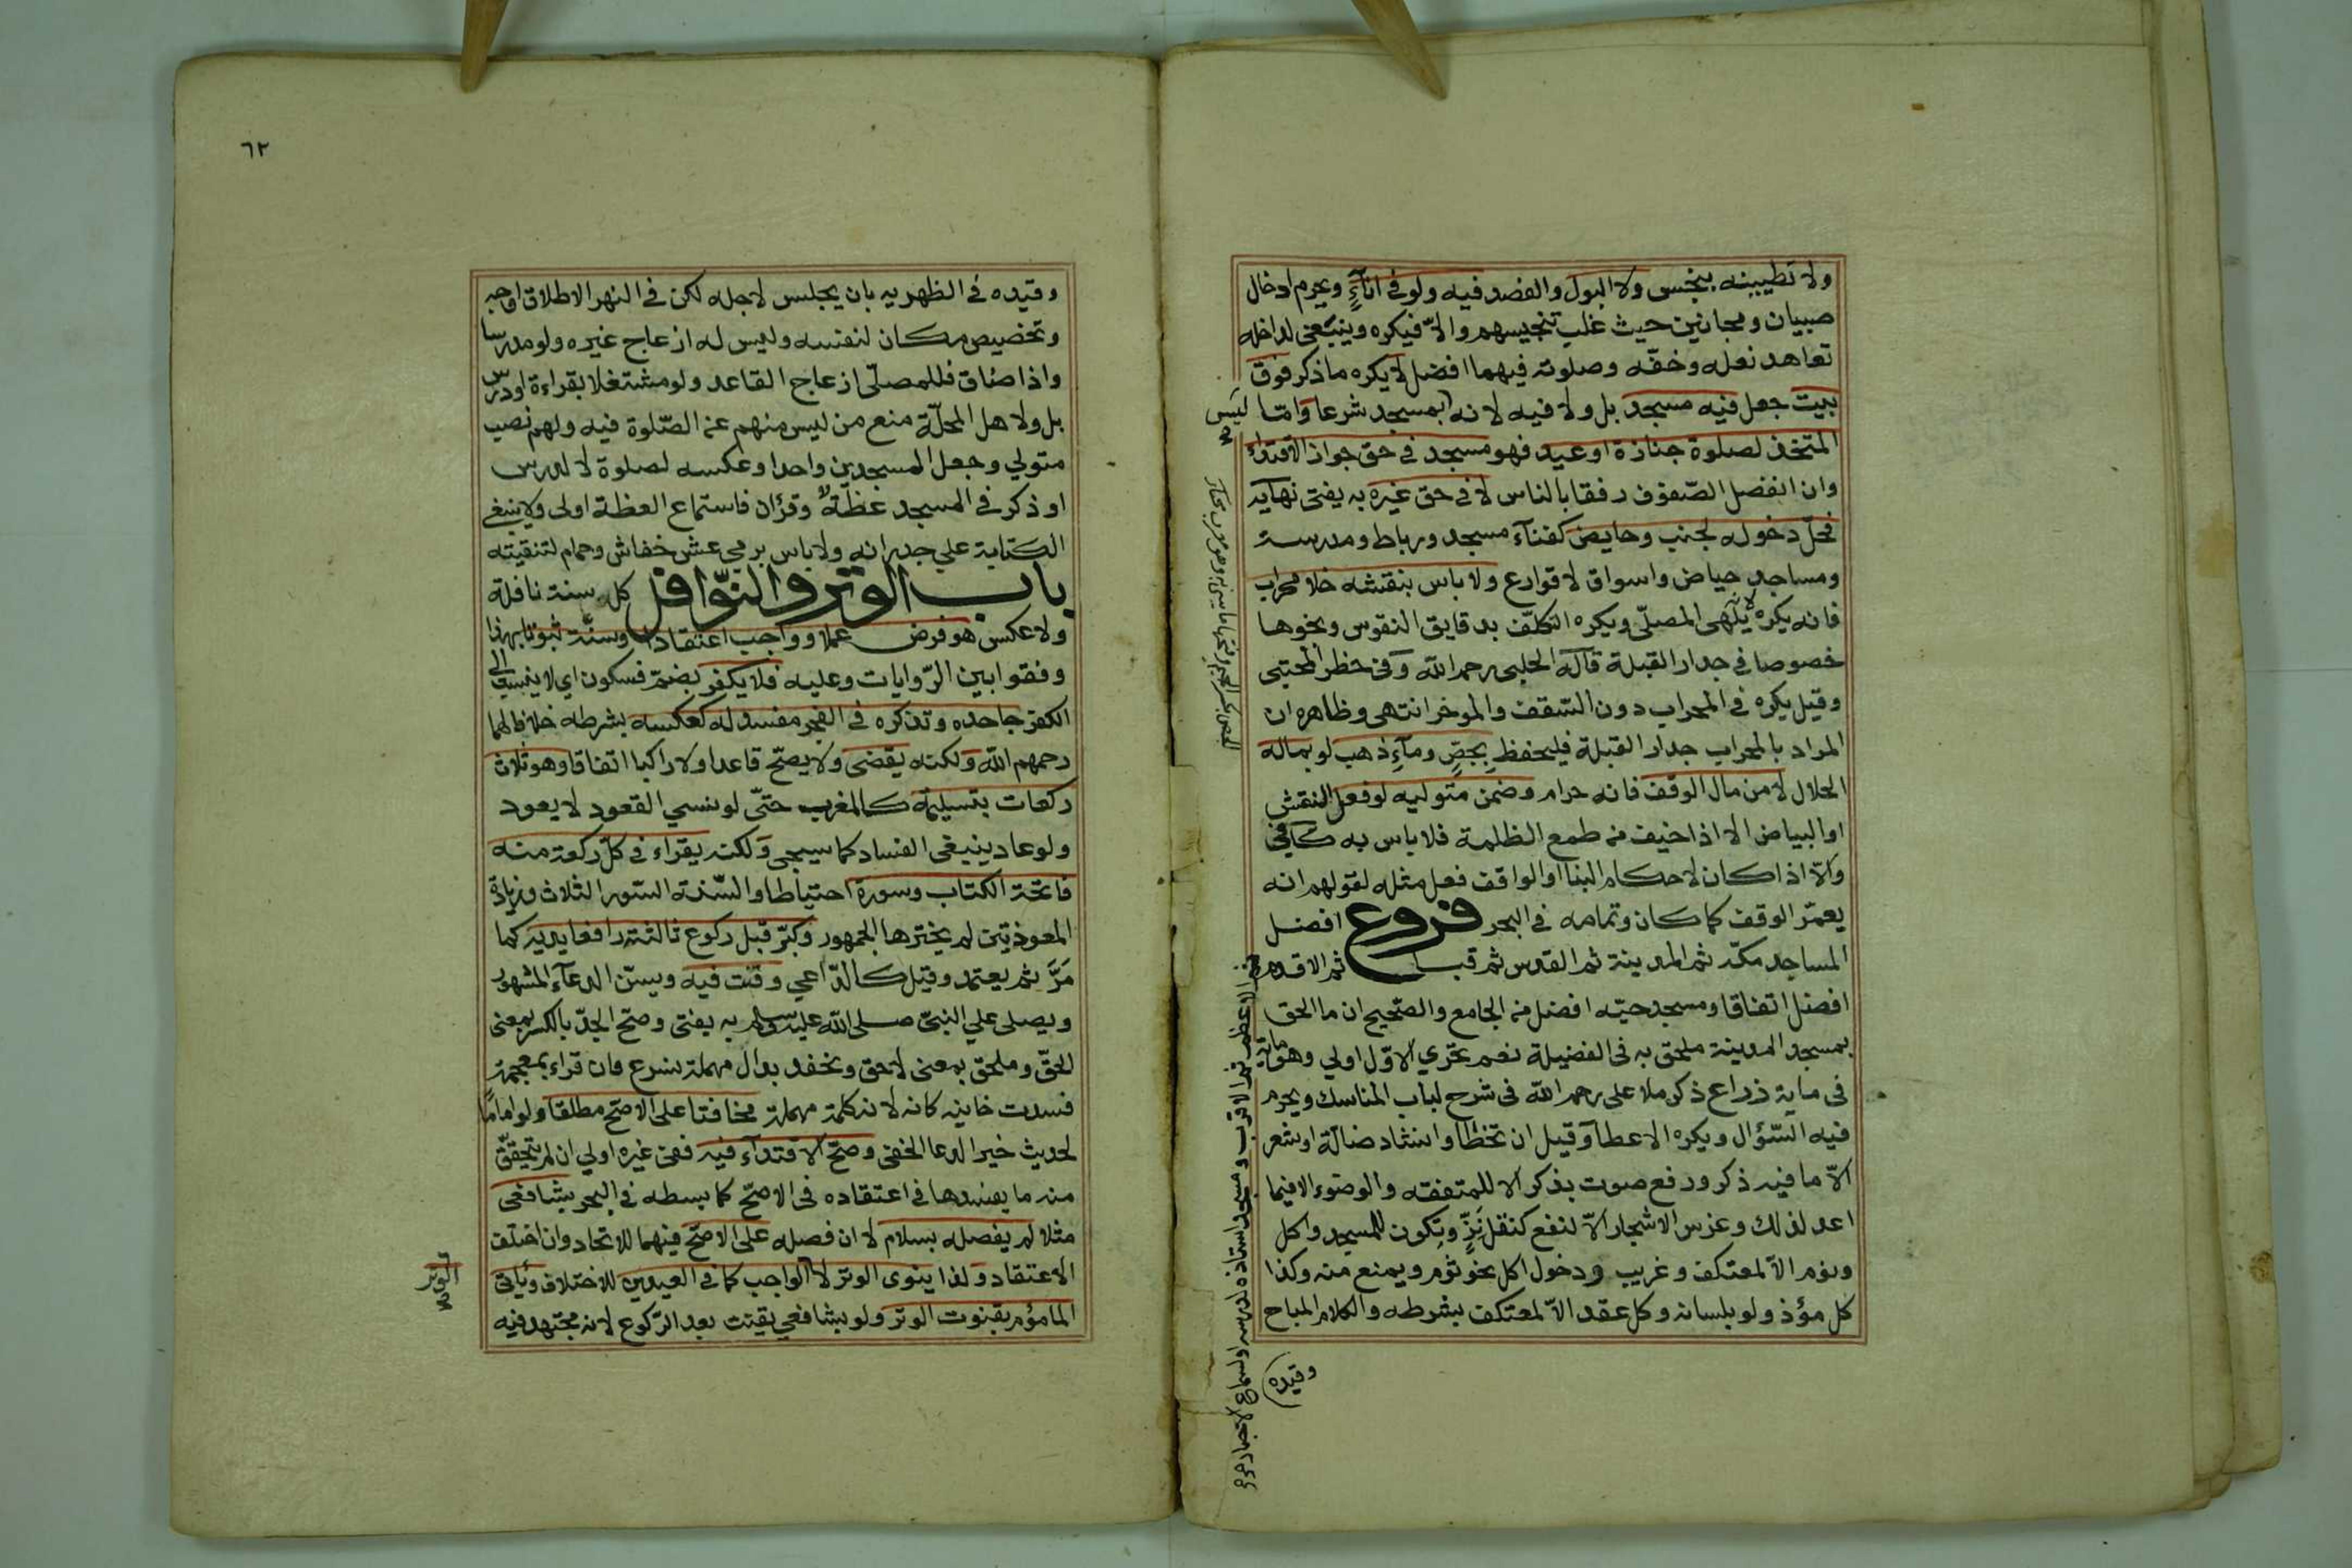 ولا تطيينه بنجس ولا البول والفصد فيه ولو في اناءٍ ويحرم ادخال
صبيان ومجانين حيث غلب تنجيسهم والّا فيكره وينبغي لداخله
تعاهد نعله وخفّه وصلوته فيهما افضل لا يكره ما ذكر فوق
بيت جعل فيه مسجد بل ولا فيه لانه بمسجد شرعا وامّا
ليس
المتخذ لصلوة جنازة او عيد فهو مسجد في حق جواز الاقتداء
وان انفصل الصّفوف رفقا بالناس لا في حق غيره به يفتى نهايه
فحلّ دخوله لجنب وحايض كفناء مسجد ورباط ومدرسة
ومساجد حياض واسواق لا قوارع ولا باس بنقشه خلا محراب
فانه يكره لانّه يلهى المصلّى ويكره التكلّف بدقايق النقوس ونحوها
خصوصا في جدار القبلة قاله الحلبى رحمه الله وفى حظر المجتبى
وقيل يكره في المحراب دون السّقف والموخر انتهى وظاهره ان
المراد بالمحراب جدار القبلة فليحفظ بجصٍّ وماءِ ذهب لو بماله
الحلال لا من مال الوقف فانه حرام وضمن متوليه لو فعل النقش
او البياض الا اذا خيف من طمع الظلمة فلا باس به كافي
والّا اذا كان لاحكام البنا او الواقف فعل مثله لقولهم انه
يعمّر الوقف كما كان وتمامه في البحر فروع افضل
المساجد مكّة ثم المدينة ثم القدس ثم قبا ثم الاقدم
ثم الاعظم ثم الاقرب ومسجد استاذه لدرسه او لسماع الاخبار
افضل اتفاقا ومسجد حيّه افضل من الجامع والصّحيح ان ما الحق
بمسجد المدينة ملحق به في الفضيلة نعم تحرّي الاوّل اولي وهو ماية
في ماية ذراع ذكره ملا على رحمه الله في شرح لباب المناسك ويحرم
فيه السّؤال ويكره الاعطا وقيل ان تخطا وانشاد ضالّة او شعر
الّا ما فيه ذكر ورفع صوت بذكر الا للمتفقه والوضوء الا فيما
اعد لذلك وغرس الاشجار الّا لنفع كتقل نَزٍّ وتكون للمسجد واكل
ونوم الّا لمعتكف وغريب ودخول اكل نحو ثوم ويمنع منه وكذا
كل مؤذ ولو بلسانه وكل عقد الّا لمعتكف بشرطه والكلام المباح
وقيده
٦٢
وقيده في الظهريه بان يجلس لاجله لكن في النهر الاطلاق اوجه
وتخصيص مكان لنفسه وليس له ازعاج غيره ولو مدرسا
واذا ضاق فللمصلّى ازعاج القاعد ولو مشتغلا بقراءة او درس
بل ولاهل المحلّة منع من ليس منهم عن الصّلوة فيه ولهم نصب
متولي وجعل المسجدين واحدا وعكسه لصلوة لا لدرس
او ذكر في المسجد عظة وقرأن فاستماع العظة اولى ولا ينبغي
الكتابة علي جدرانه ولا باس برمى عش خفاش وحمام لتنقيته
باب الوتر والنّوافل كل سنة نافلة
ولا عكس هو فرض عملا وواجب اعتقادا وسنّة ثبوتا بهذا
وفقوا بين الرّوايات وعليه فلا يكفر بضمّ فسكون اي لا ينسب الي
الكفر جاحده وتذكره في الفجر مفسد له كعكسه بشرطه خلافا لهما
رحمهم الله ولكنه يقضى ولا يصحّ قاعدا ولا راكبا اتفاقا وهو ثلاث
ركعات بتسليمة كالمغرب حتّى لو نسي القعود لا يعود
ولو عاد ينبغى الفساد كما سيجى ولكنه يقراء في كلّ ركعة منه
فاتحة الكتاب وسورة احتياطا والسّنة السّور الثلاث وزيادة
المعوذتين لم يخترها الجمهور وكبّر قبل ركوع ثالثته رافعا يديه كما
مَرَّ ثم يعتمد وقيل كالدّاعي وقنت فيه ويسنّ الدعاء المشهور
ويصلى علي النبىّ صلى الله عليه وسلم به يفتى وصحّ الجدّ بالكسر بمعنى
الحقّ وملحق بمعنى لاحق ونحفد بدال مهملة نسرع فان قراء بمعجمة
فسدت خانيه كانه لانه كلمة مهملة مخافتا على الاصحّ مطلقا ولو اماما
لحديث خير الدعا الخفى وصحّ الاقتداء فيه ففى غيره اولي ان لم يتحقّق
منه ما يفسدها في اعتقاده في الاصحّ كما بسطه في البحر بشافعى
مثلا لم يفصله بسلام لا ان فصله على الاصحّ فيهما للاتحاد وان اختلف
الاعتقاد ولذا ينوى الوتر لا الواجب كما في العيدين للاختلاف ويأتى
الوتر
المأموم بقنوت الوتر ولو بشافعي يقنت بعد الرّكوع لانه مجتهد فيه